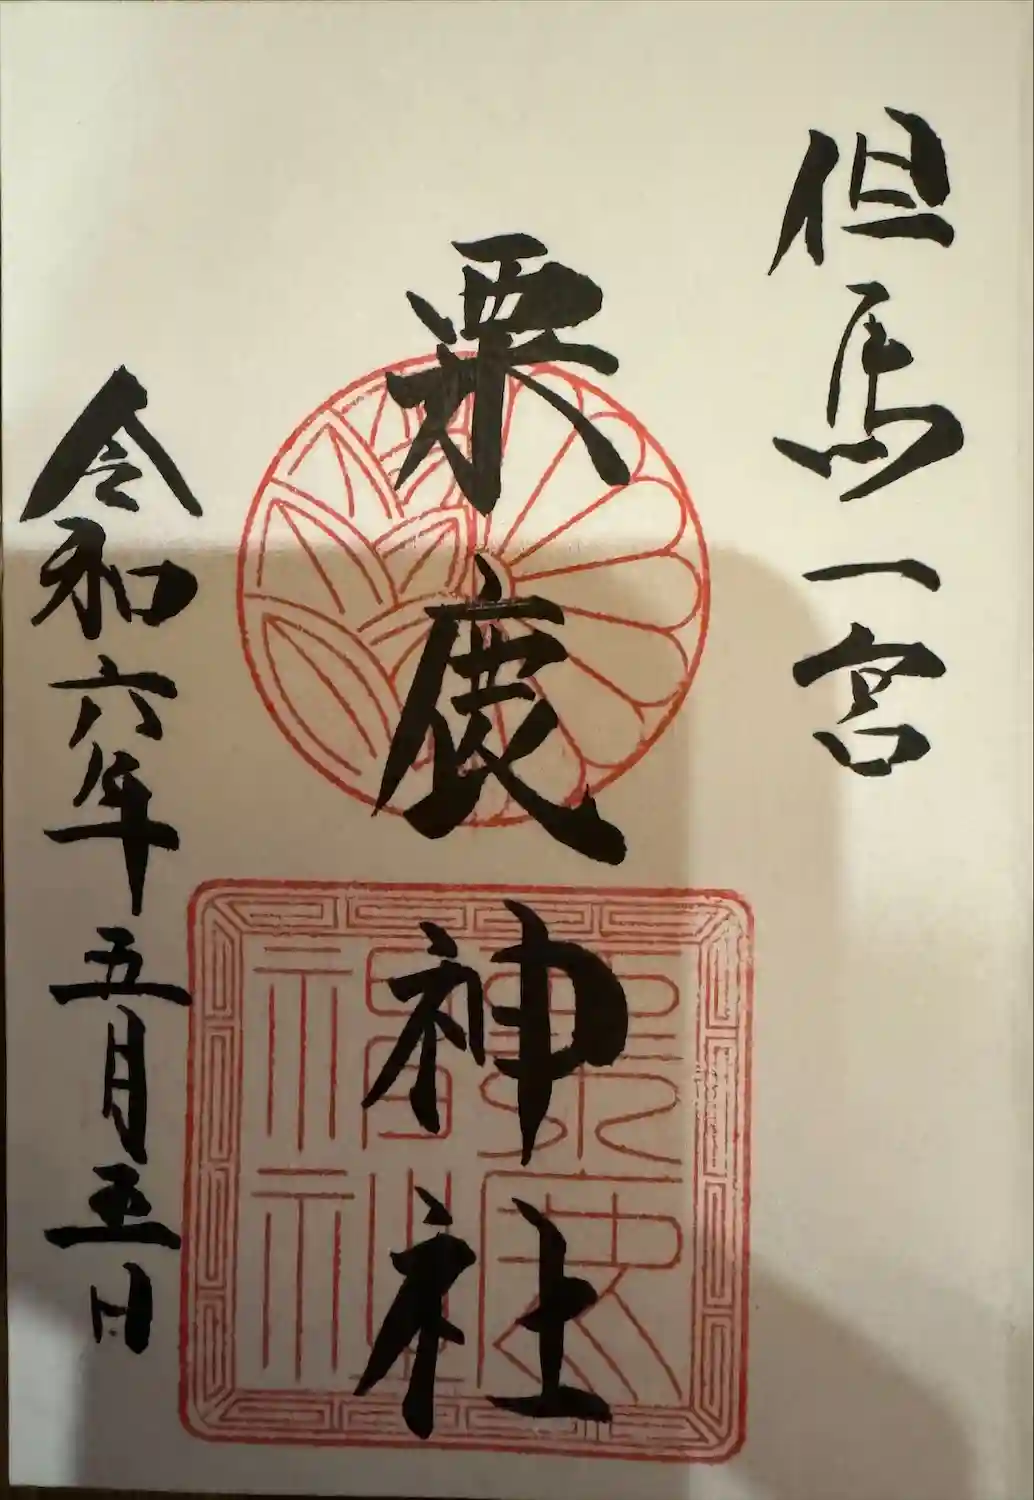 但馬一宮
粟鹿神社
令和六年五月五日
粟鹿神社